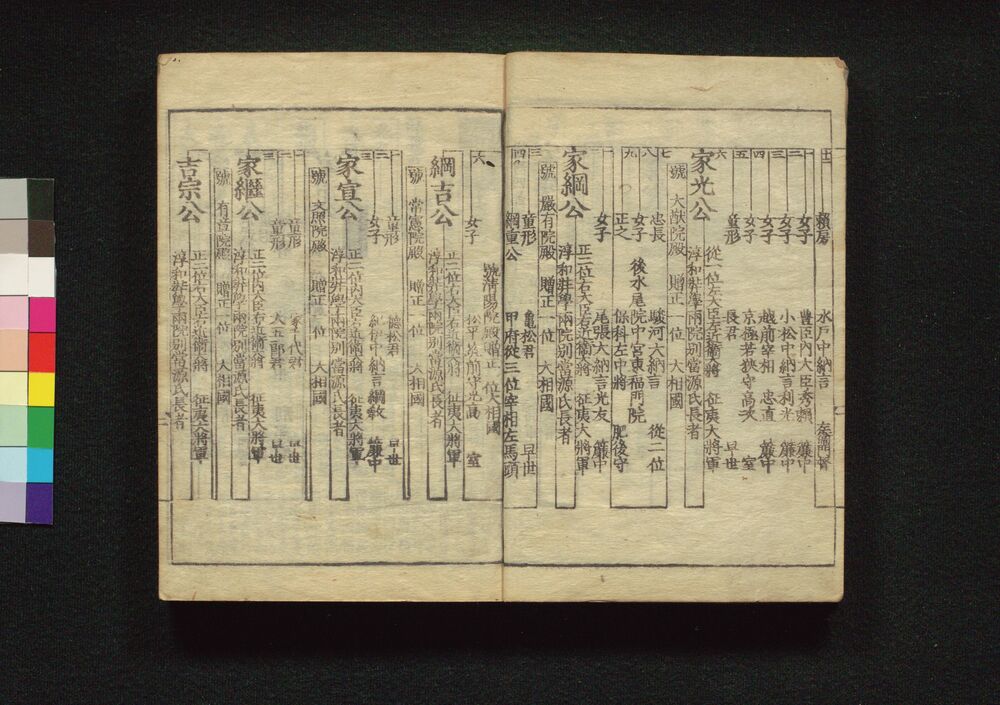 十一 頼房 水戸中納言 左衛門督
一 女子 豊臣内大臣秀頼 簾中
二 女子 小松中納言利光 簾中
三 女子 越前宰相 忠直 簾中
四 女子 京極若狭守高次 室
五 童形 長君 早世
六 家光公 從一位左大臣左近衞大將 征夷大將軍
淳和奨學兩院別當源氏長者
號 大猷院殿 贈正一位 大相國
七 忠長 駿河大納言 從二位
八 女子 後水尾院中宮東福門院
九 正之 保科左中將 肥後守
女子 尾張大納言光友 簾中
家綱公 正二位右大臣右近衞大將 征夷大將軍
淳和奨學兩院別當源氏長者
號 嚴有院殿 贈正一位 大相國
三 童形 亀松君 早世
四 綱重公 甲府從三位宰相左馬頭
號清陽院殿贈正一位大相國
女子 松平筑前守光高 室
六 綱吉公 正二位右大臣右近衞大將 征夷大將軍
淳和奨學兩院別當源氏長者
號 常憲院殿 贈正一位 大相國
一 童形 德松君 早世
二 女子 紀伊中納言綱教 簾中
三 家宣公 正二位内大臣右近衞大將 征夷大將軍
淳和奨學兩院別當源氏長者
號 文照院殿 贈正一位 大相國
一 童形 家千代君 早世
二 童形 大五郎君 早世
三 家繼公 正二位内大臣右近衞大將 征夷大將軍
淳和奨學兩院別當源氏長者
號 有章院殿 贈正一位 大相國
吉宗公 正二位右大臣右近衞大將 征夷大將軍
淳和奨學兩院別當源氏長者